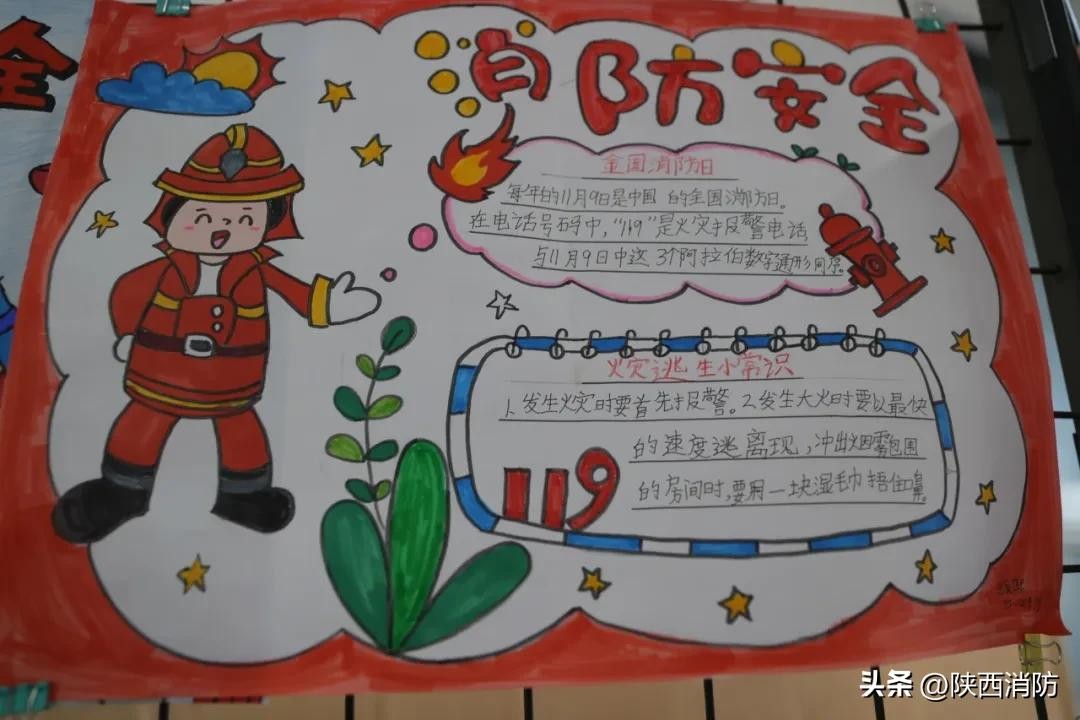 全
消防安全
全国消防日
每年的11月9日是中国 的全国消防日。
在电话号码中，“119”是火灾报警电话
与11月9日中这 3个阿拉伯数字通形同序。
火灾逃生小常识
1、发生火灾时要首先报警。2.发生大火时要以最快
的速度逃离现，冲出烟雾包围
的房间时，要用一块湿毛巾捂住口鼻。
119
头条 @陕西消防